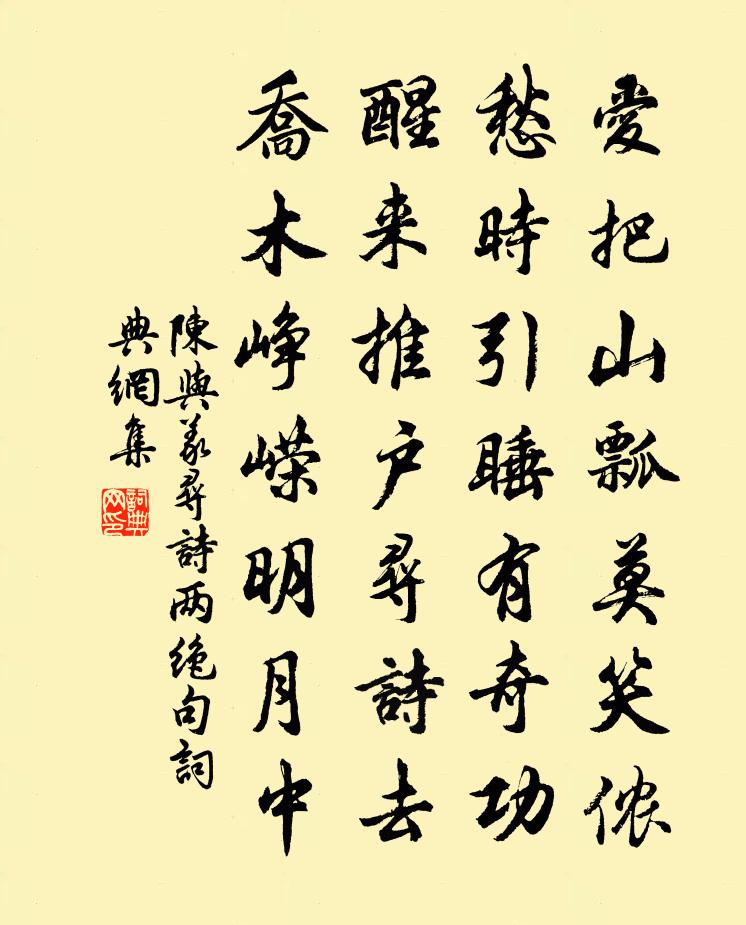 愛把山瓢莫笑侬
愁時引睡有奇功
醒来推户尋詩去
喬木峥嵘明月中
陳與義尋詩两绝句詞
典網集
詞典网印